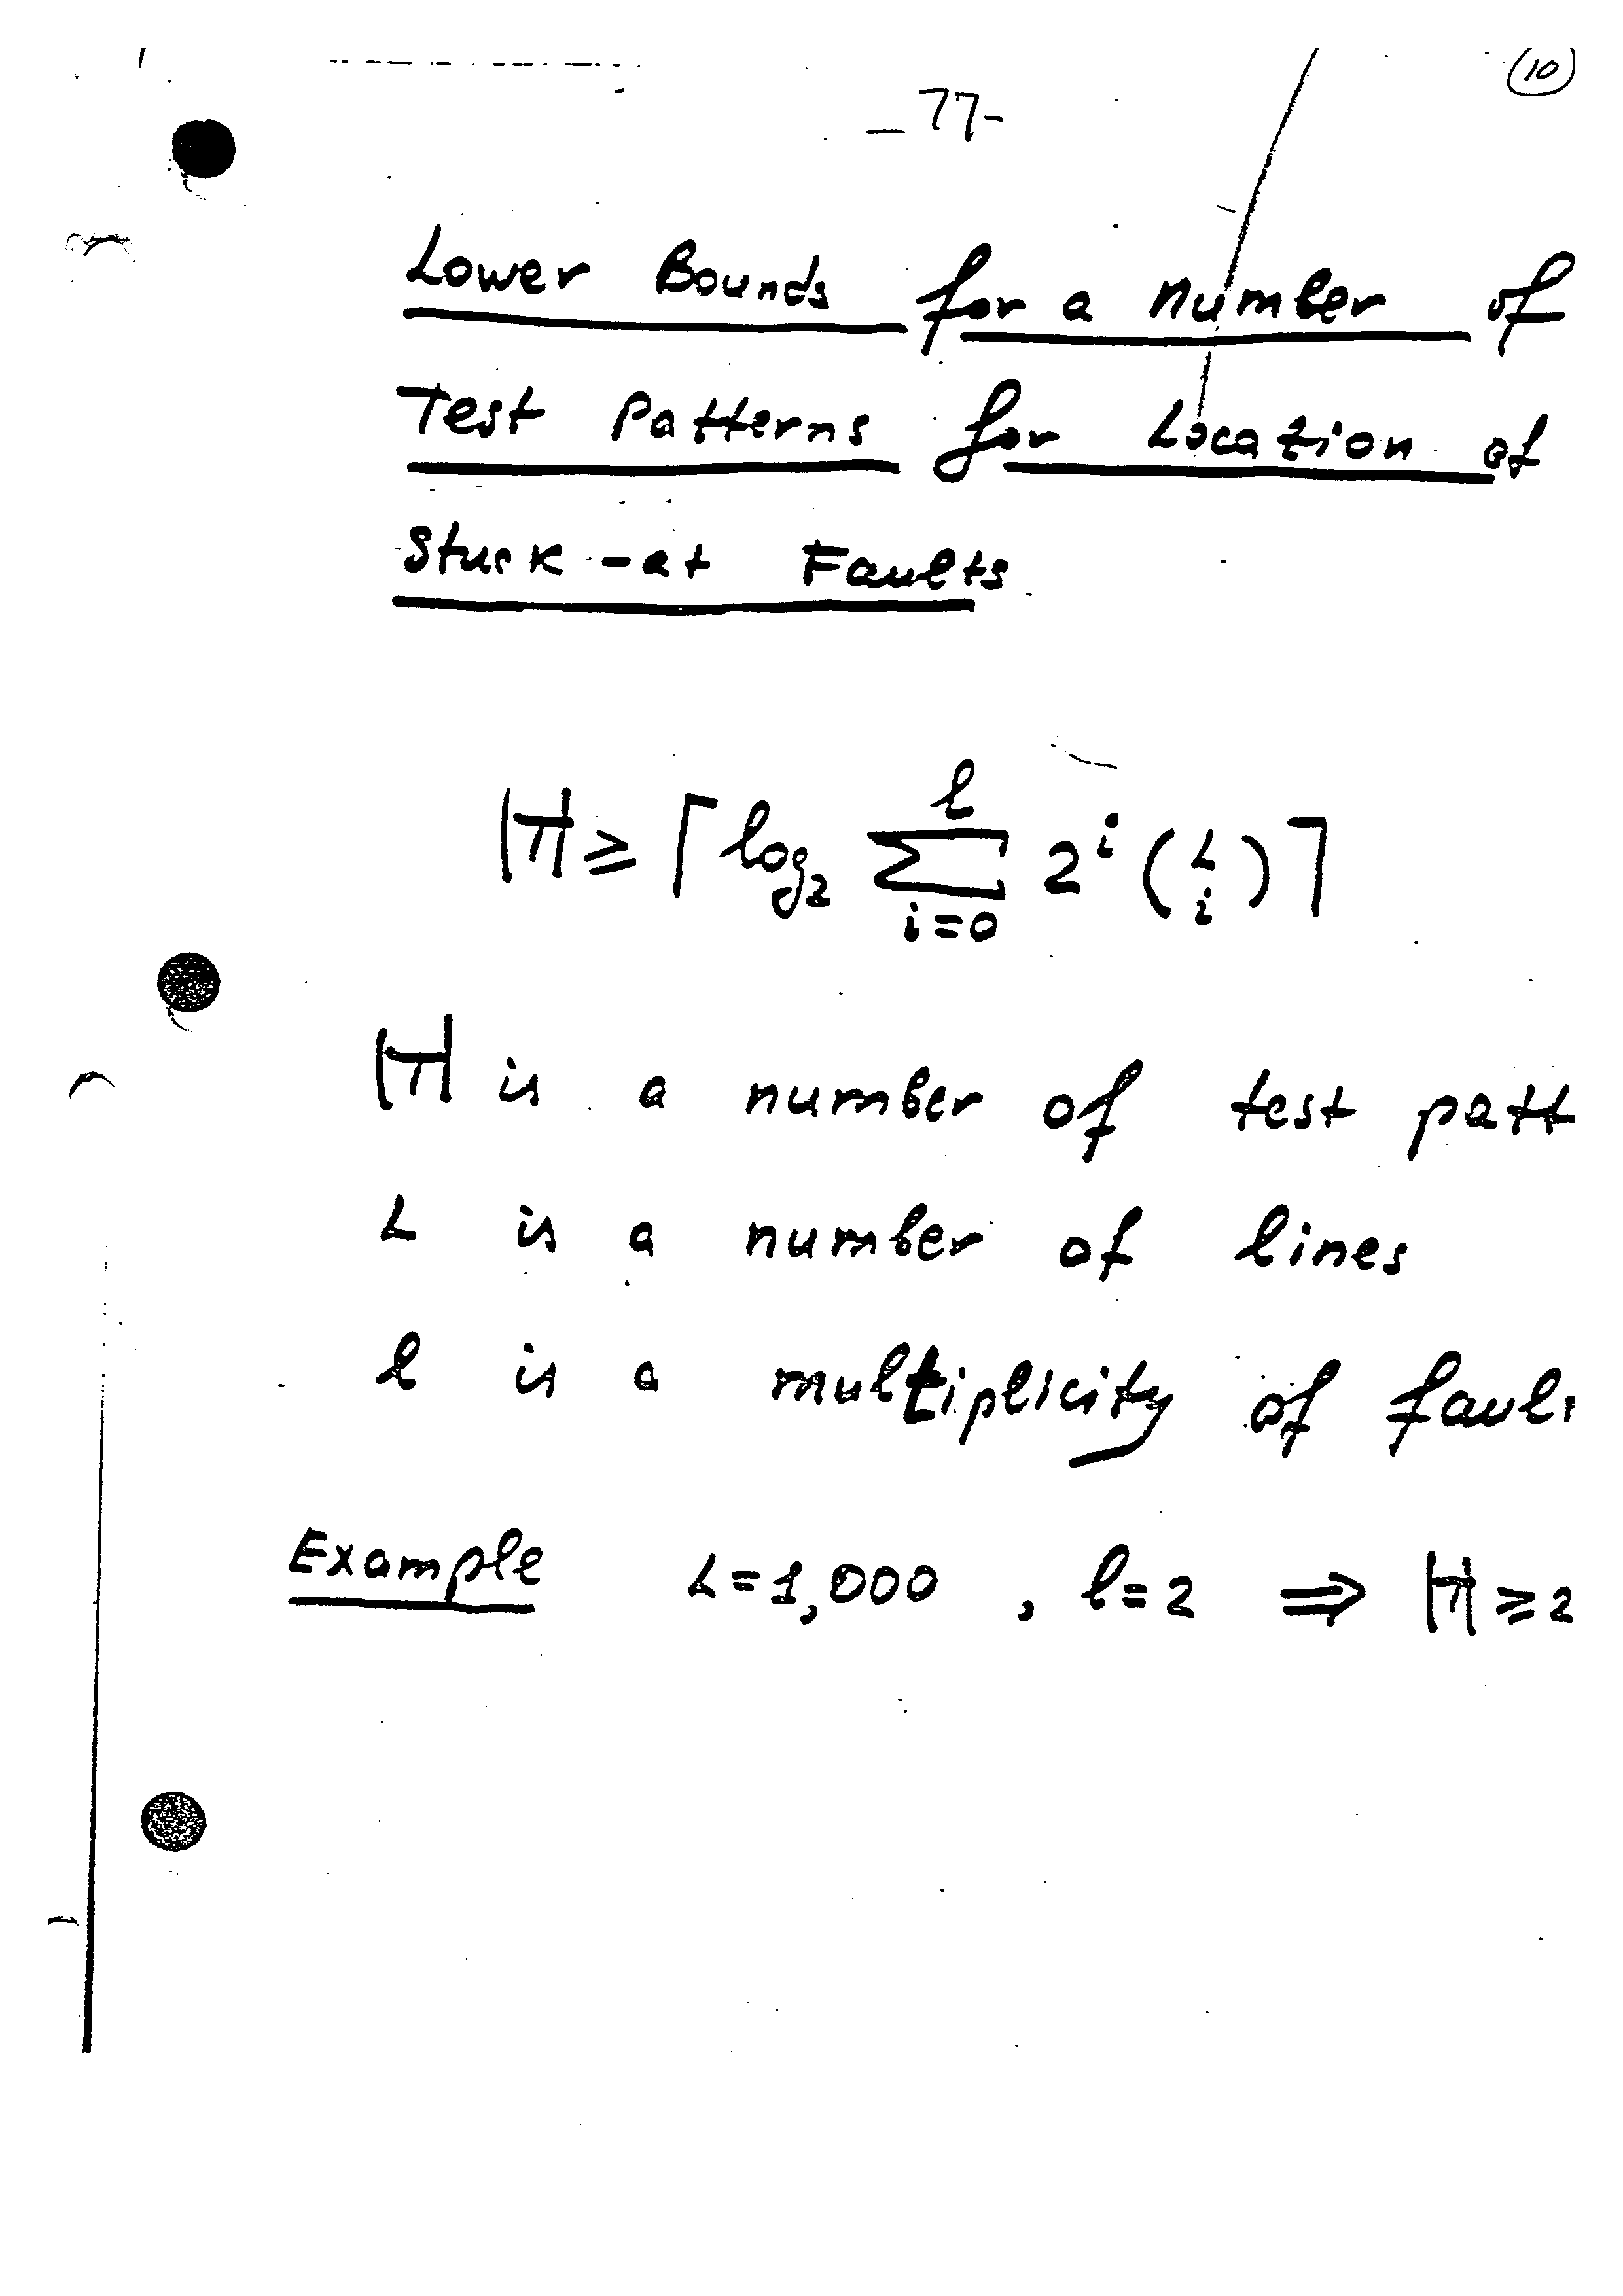 10
-77-
Lower Bounds for a number of
Test Patterns for Location of
Stuck-at Faults
|T| ≥ ⌈log₂ ∑_{i=0}^{l} 2^i (L i)⌉
|T| is a number of test patt
L is a number of lines
l is a multiplicity of faul
Example L=1,000 , l=2 ⇒ |T| ≥ 2